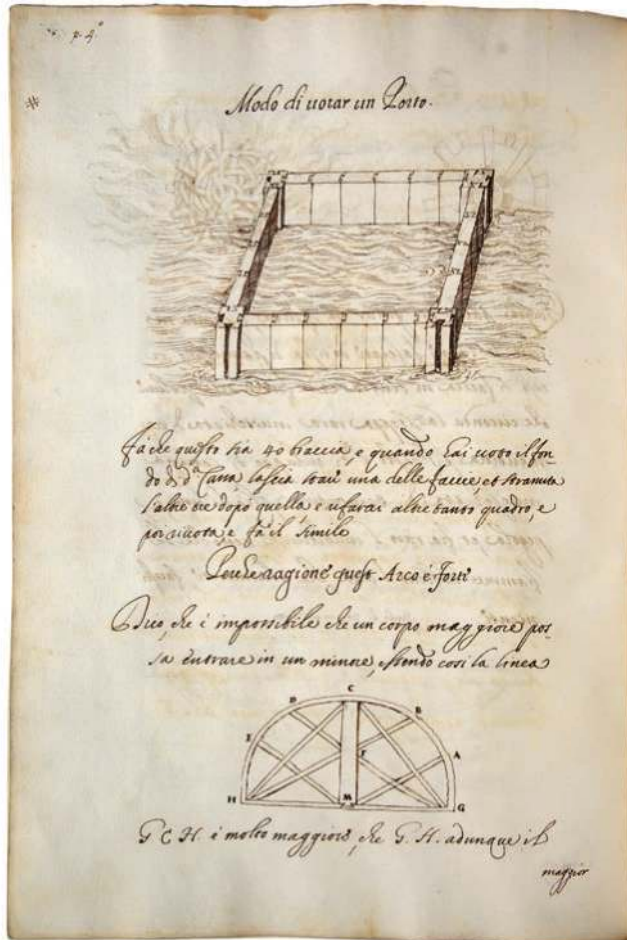 p. 2.ª
#
Modo di uotar un Porto.
Fà che questo sia 40 braccia, e quando hai uoto il fon-
do di d.ª lascia una delle facce, et stramuta
l'altre tre dopò quella e rifarai altre tanto quadro, e
poi riuota, e fà il simile
Perche ragione quest Arco è forte
Dico, che è impossibile che un corpo maggiore pos-
sa entrare in un minore, essendo cosi la linea
C
D
B
E
F
A
H
M
G
G C H. è molto maggiore, che G. H. adunque il
maggior